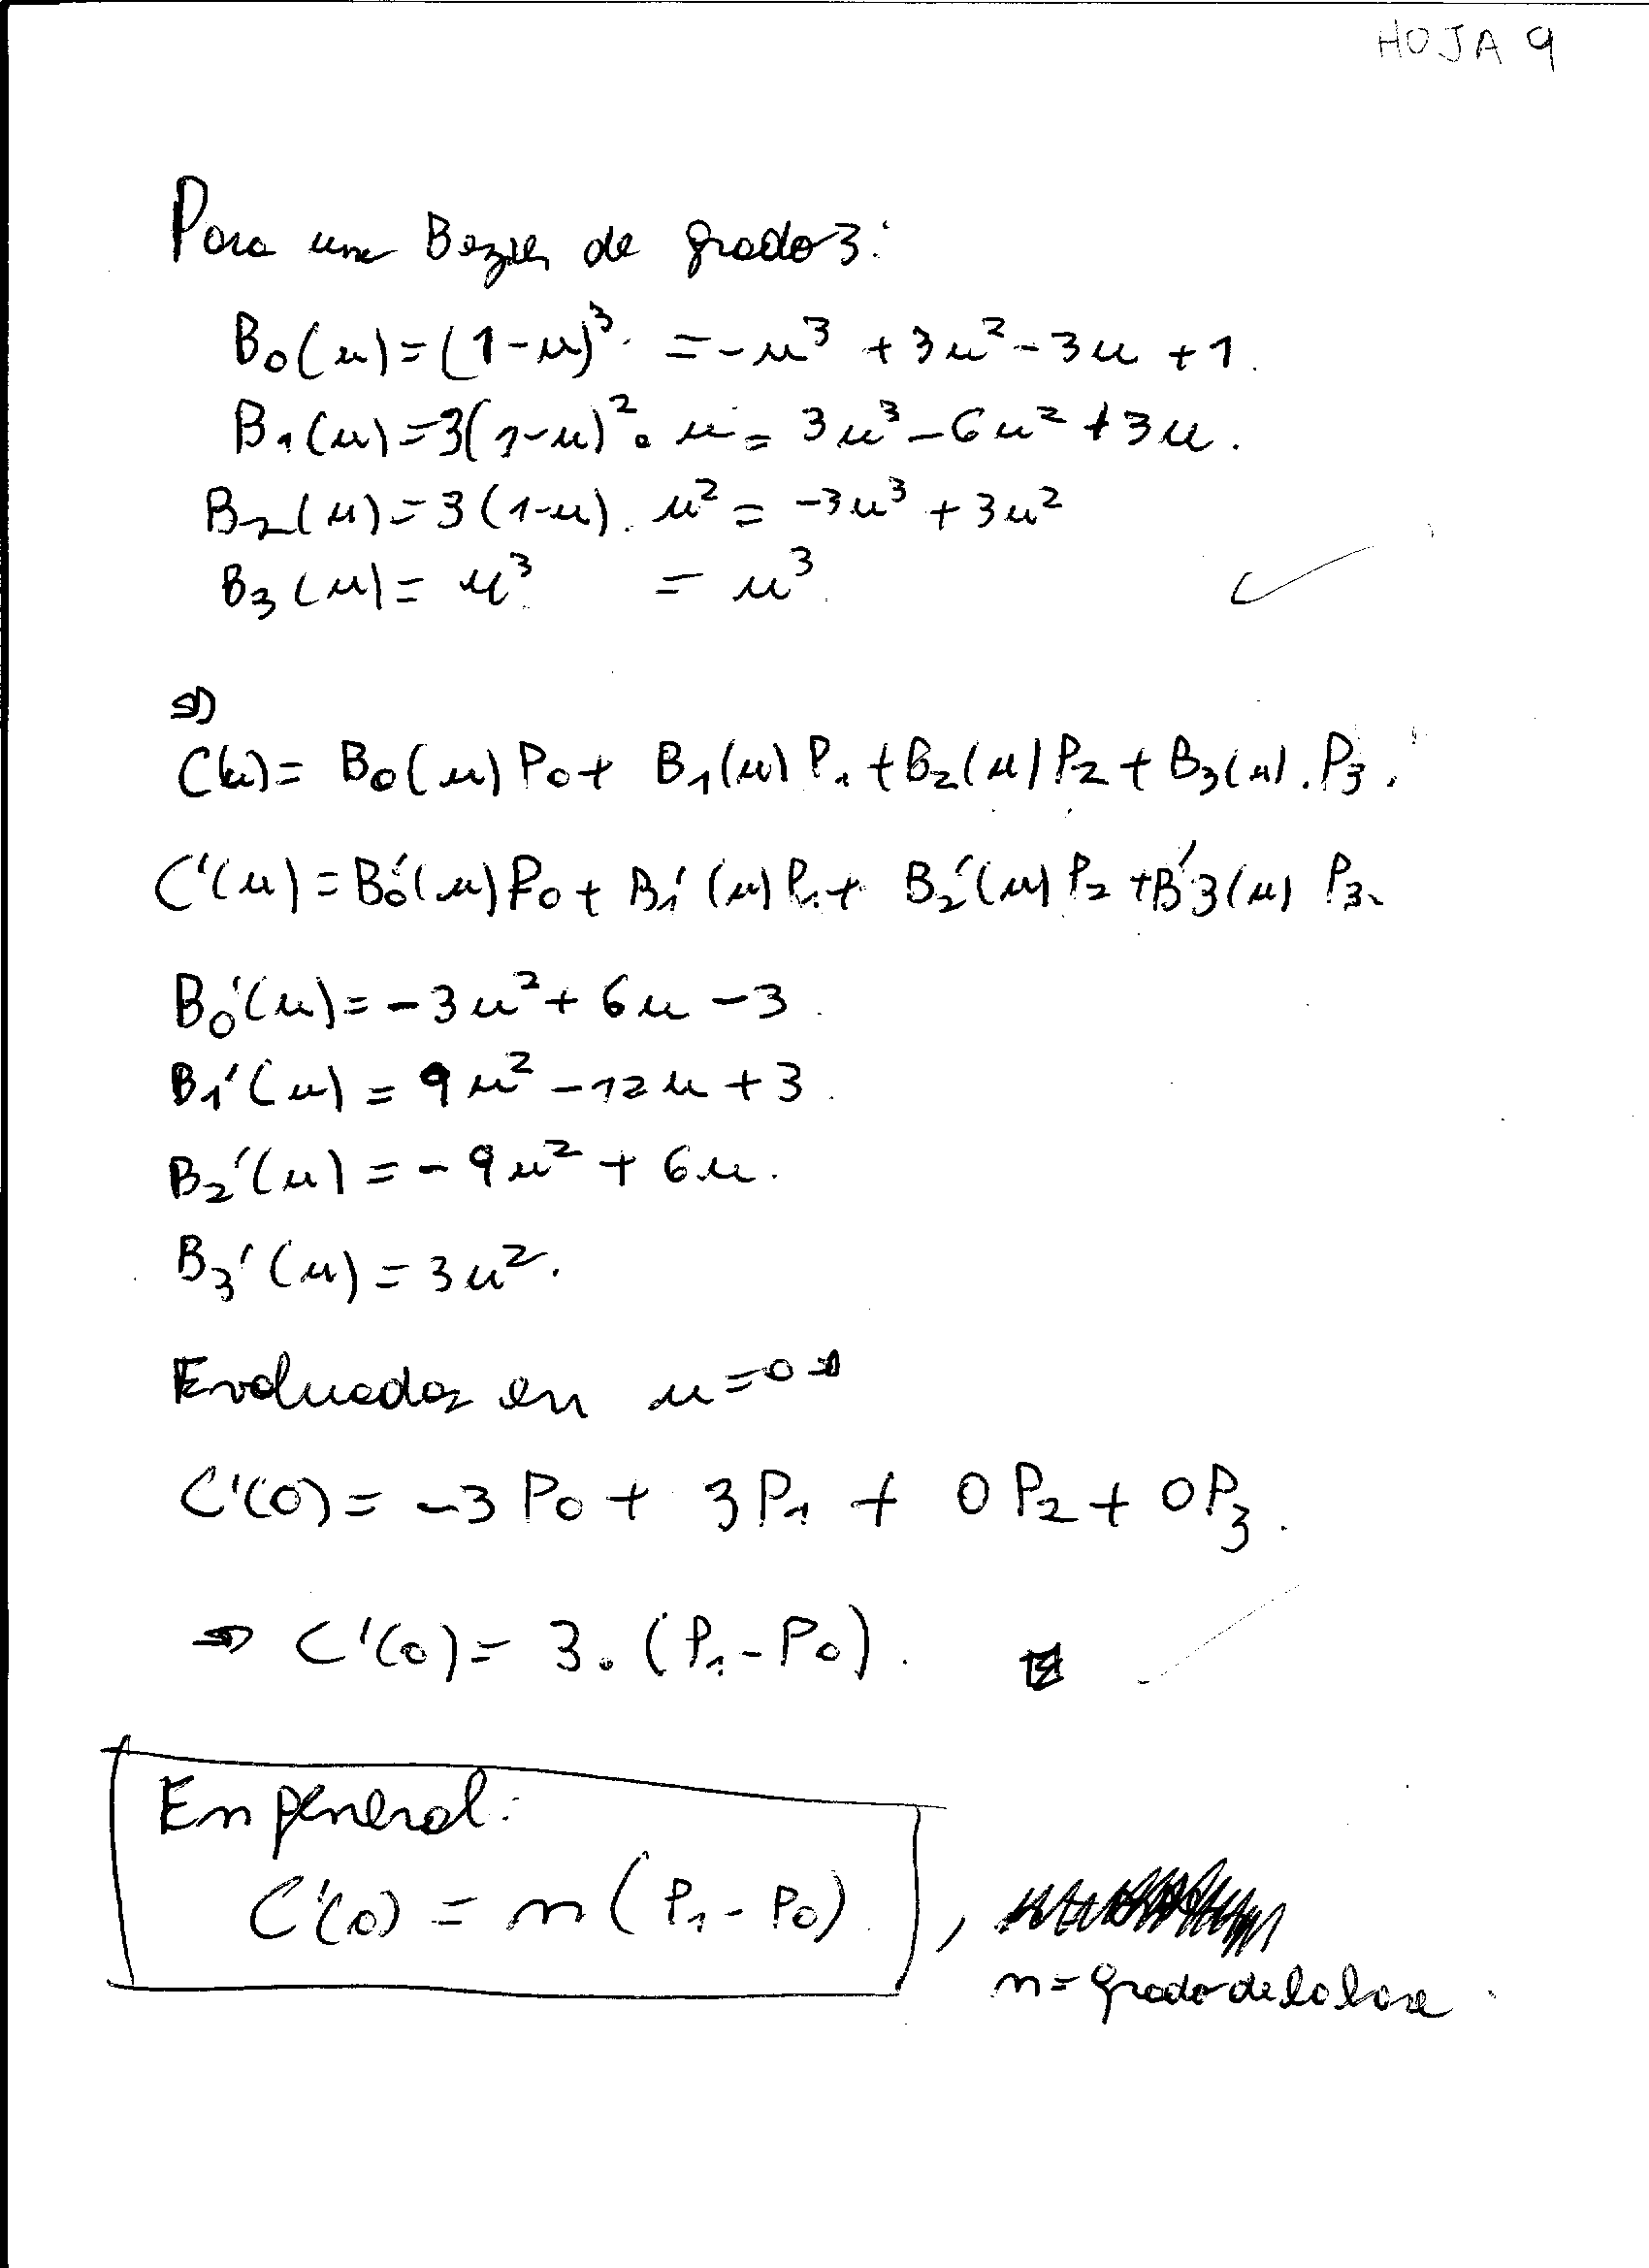 HOJA 9
Para una Bezier de grado 3:
B₀(u) = (1-u)³ = -u³ + 3u² - 3u + 1.
B₁(u) = 3(1-u)² . u = 3u³ - 6u² + 3u.
B₂(u) = 3(1-u) . u² = -3u³ + 3u²
B₃(u) = u³ = u³.
⇒
C(u) = B₀(u) P₀ + B₁(u) P₁ + B₂(u) P₂ + B₃(u) . P₃.
C'(u) = B₀'(u) P₀ + B₁'(u) P₁ + B₂'(u) P₂ + B'₃(u) P₃.
B₀'(u) = -3u² + 6u - 3.
B₁'(u) = 9u² - 12u + 3.
B₂'(u) = -9u² + 6u.
B₃'(u) = 3u².
Evaluados en u = 0 ⇒
C'(0) = -3 P₀ + 3 P₁ + 0 P₂ + 0 P₃.
⇒ C'(0) = 3 . (P₁ - P₀).
En general:
C'(0) = n (P₁ - P₀) ,
n = grado de la base.